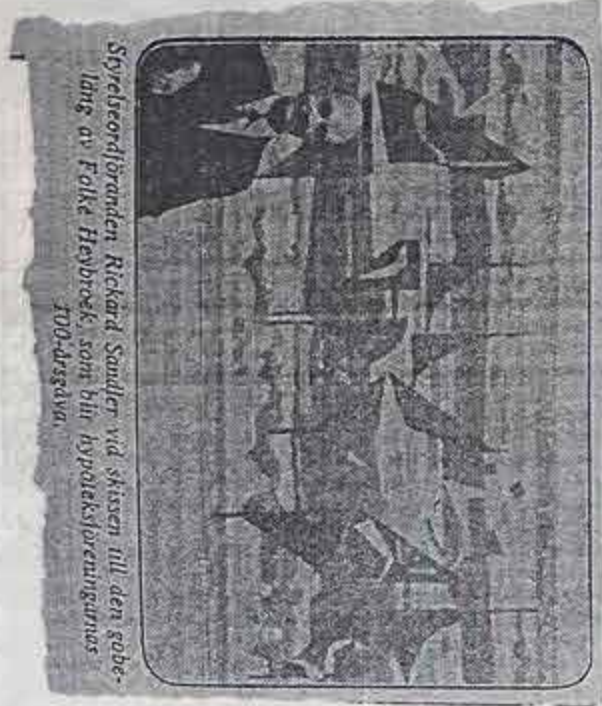 Styrelseordföranden Rickard Sandler vid skissen till den gobe-
läng av Folke Heybroek, som blir hypoteksföreningarnas
100-årsgåva.